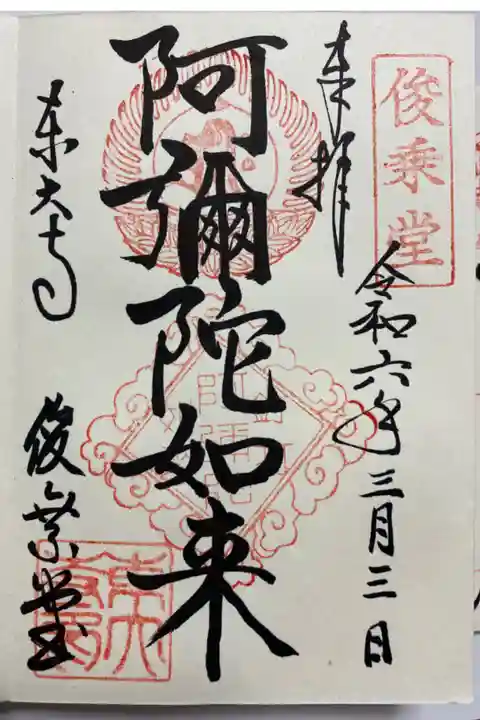 俊乗堂
奉拝
令和六年三月三日
阿彌陀如来
東大寺
俊乗堂